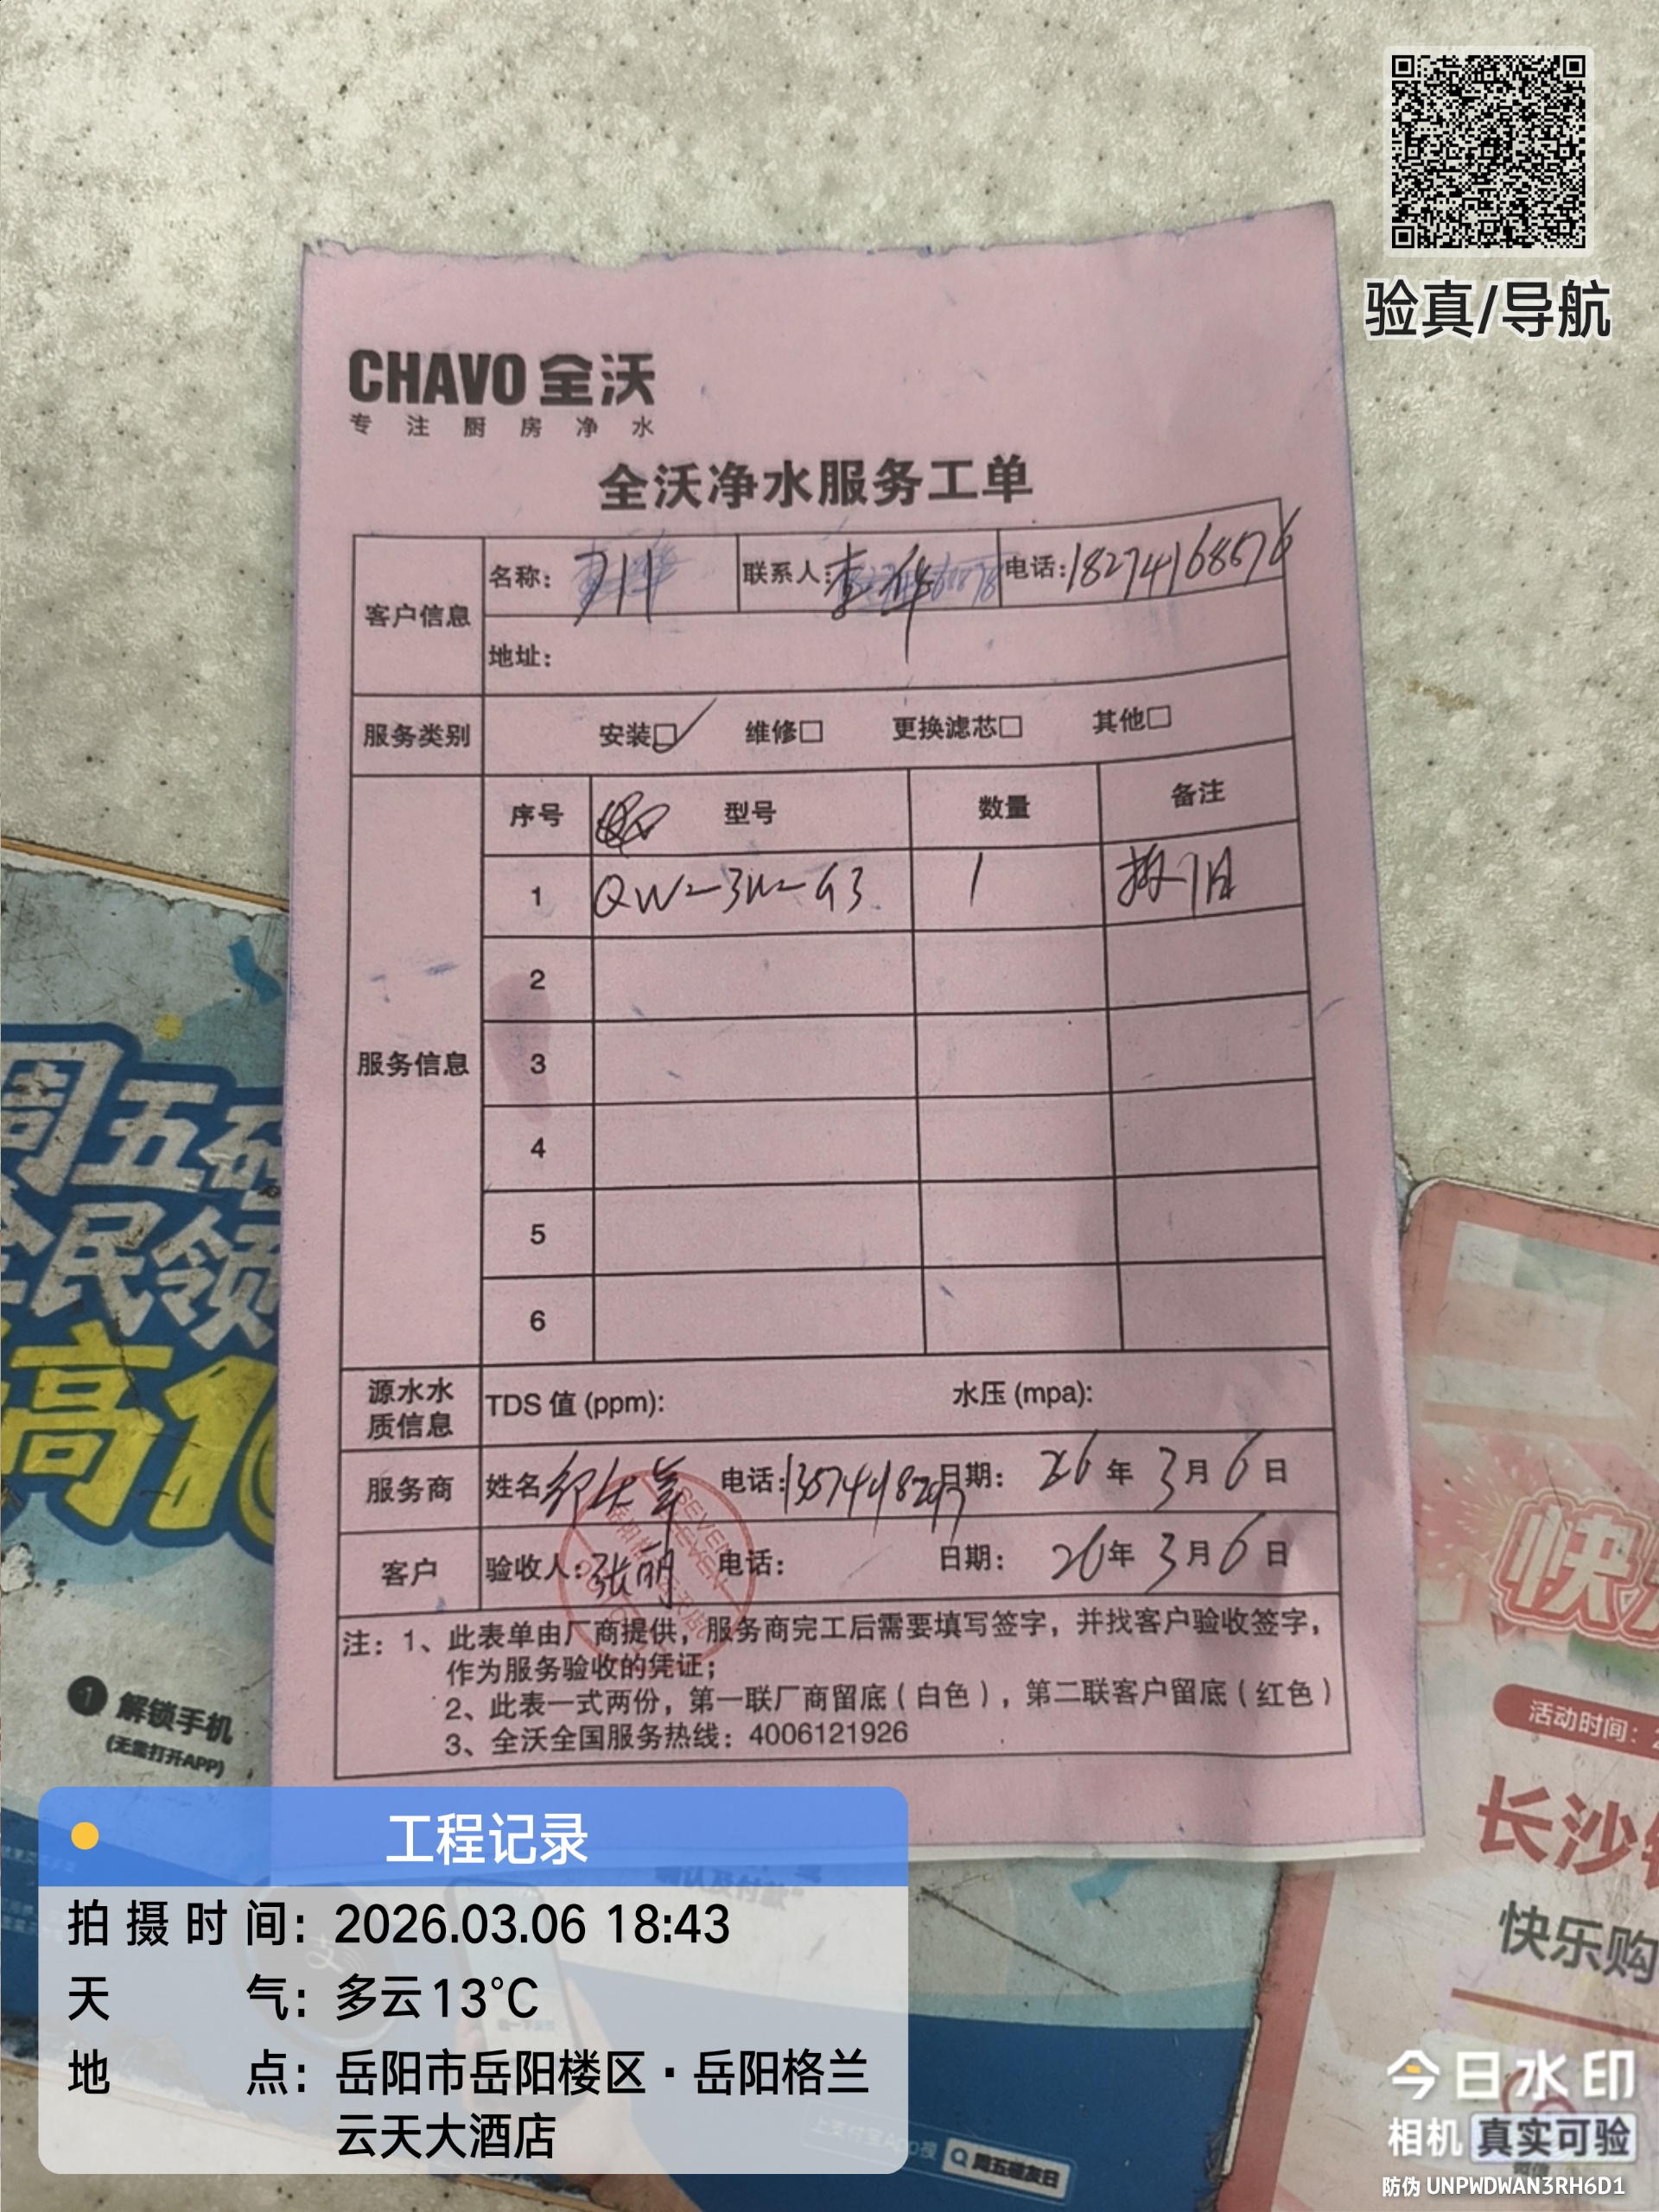 验真/导航
CHAVO 全沃
专注厨房净水
全沃净水服务工单
客户信息
名称: 联系人: 李华 电话: 18274168576
地址:
服务类别 安装☑ 维修□ 更换滤芯□ 其他□
服务信息
序号 型号 数量 备注
1 QW-3W-G3 1 拆旧
2
3
4
5
6
源水水质信息 TDS 值 (ppm): 水压 (mpa):
服务商 姓名 电话: 日期: 26 年 3 月 6 日
客户 验收人: 张丽 电话: 日期: 26 年 3 月 6 日
SEVEN
ELEVEN
注: 1、此表单由厂商提供，服务商完工后需要填写签字，并找客户验收签字，
作为服务验收的凭证；
2、此表一式两份，第一联厂商留底（白色），第二联客户留底（红色）
3、全沃全国服务热线：4006121926
周五
全民领
高
1 解锁手机
(无需打开APP)
确认及付款
支
上支付宝App搜 周五碰友日
快
活动时间：2
长沙
快乐购
工程记录
拍摄时间：2026.03.06 18:43
天气：多云13℃
地点：岳阳市岳阳楼区·岳阳格兰
云天大酒店
今日水印
相机 真实可验
防伪 UNPWDWAN3RH6D1